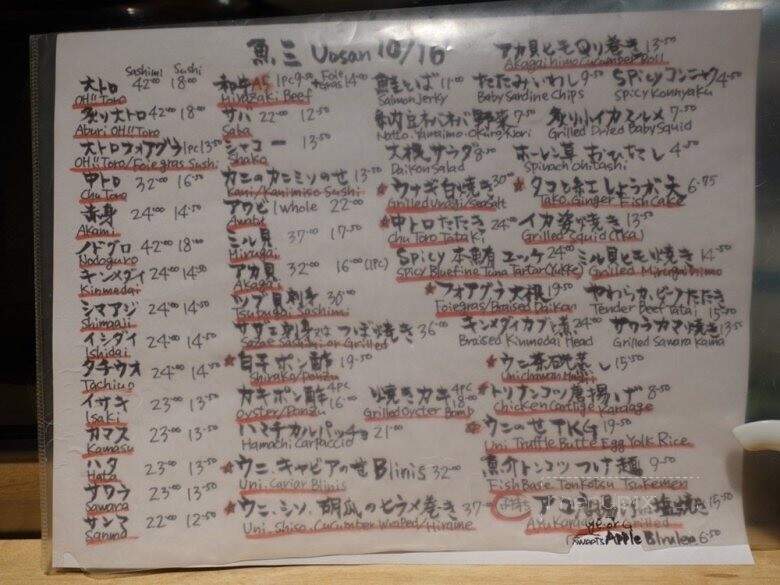 魚三 Uosan 10/16
Sashimi Sushi
大トロ 42.00 18.00
OH!! Toro
炙り大トロ 42.00 18.00
Aburi OH!! Toro
大トロフォアグラ 1pc 13.50
OH!! Toro/Foie gras Sushi
中トロ 32.00 16.50
Chu Toro
赤身 24.00 14.50
Akami
ノドグロ 42.00 18.00
Nodoguro
キンメダイ 24.00 14.50
Kinmedai
シマアジ 24.00 14.50
Shimaaji
イシダイ 24.00 14.50
Ishidai
タチウオ 24.00 14.50
Tachiuo
イサキ 23.00 13.50
Isaki
カマス 23.00 13.50
Kamasu
ハタ 23.00 13.50
Hata
サワラ 23.00 13.50
Sawara
サンマ 22.00 12.50
Sanma
和牛A5 1pc 9.50 Foie gras 14.00
Miyazaki Beef
サバ 22.00 12.50
Saba
シャコー 13.50
Shako
カニのカニミソのせ 13.50
Kani/Kanimiso Sushi
アワビ 1 whole 22.00
Awabi
ミル貝 37.00 17.50
Mirugai
アカ貝 32.00 16.00 (1pc)
Akagai
ツブ貝刺身 30.00
Tsubugai Sashimi
サザエ刺身又は つぼ焼き 36.00
Sazae Sashimi or Grilled
★白子ポン酢 19.50
Shirako/Ponzu
カキポン酢 4pc 16.00
Oyster/Ponzu
焼きカキ 4pc 18.00
Grilled Oyster Bomb
ハマチカルパッチョ 21.00
Hamachi Carpaccio
★ウニ、キャビアのせ Blinis 32.00
Uni. Caviar Blinis
★ウニ、シソ、胡瓜のヒラメ巻き 37.00
Uni. Shiso. Cucumber Wrapped/Hirame
アカ貝ヒモQり巻き 13.50
Akagai himo Cucumber Roll
鮭とば 11.00
Salmon Jerky
たたみいわし 9.50
Baby Sardine Chips
Spicy コンニャク 4.50
Spicy Konnyaku
納豆ネバネバ野菜 7.50
Natto. Yamaimo. Okura. Nori
炙り小イカスルメ 7.50
Grilled Dried Baby Squid
大根サラダ 8.50
Daikon Salad
ホーレン草 おひたし 4.50
Spinach Ohitashi
★ウナギ白焼き 30.00
Grilled Unagi/Sea Salt
★タコと紅しょうが天 6.75
Tako. Ginger Fish Cake
★中トロたたき 24.00
Chu Toro Tataki
イカ姿焼き 13.50
Grilled Squid (Ika)
Spicy 本鮪ユッケ 24.00
Spicy Bluefine Tuna Tartar (Yukke)
ミル貝ヒモ焼き 14.50
Grilled Mirugai himo
★フォアグラ大根 19.50
Foiegras/Braised Daikon
やわらかビーフたたき 15.50
Tender Beef Tataki
キンメダイカブト煮 24.00
Braised Kinmedai Head
サワラカマ焼き 13.50
Grilled Sawara Kama
★ウニ茶碗蒸し 15.50
★トリナンコツ唐揚げ 8.50
Chicken Cartilge Karaage
★ウニのせTKG 19.50
Uni. Truffle Butte Egg Yolk Rice
魚介トンコツ つけ麺 9.50
Fish Base. Tonkotsu Tsukemen
15.50
Apple Brulee 6.50